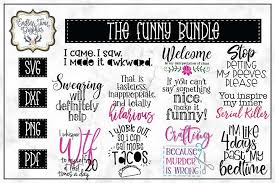 Endless Time
Graphics
THE FUNNY BUNDLE
SVG
DXF
PNG
PDF
I came. I saw.
I made it awkward.
Swearing
will
definitely
help
I whisper
Wtf
to myself
at least 20
times a day
That is
tasteless,
inappropriate,
and totally
hilarious
I work out
so i can
eat more
TACOS
Welcome
If you can't
say something
nice,
make it
funny!
Crafting
BECAUSE
MURDER IS
WRONG
Stop
PETTING
MY PEEVES
PLEASE
You inspire
my inner
Serial Killer
I'M LIKE
4 days
PAST MY
BEDTIME